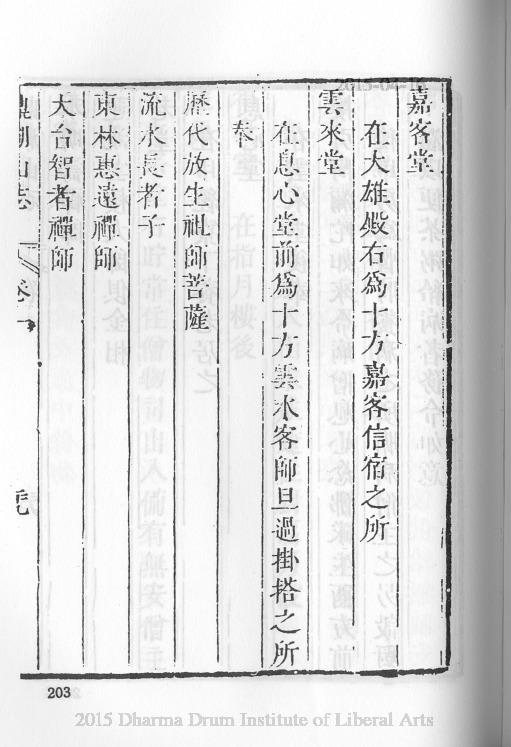 嘉客堂
在大雄殿右爲十方嘉客信宿之所
雲來堂
在息心堂前爲十方雲水客師旦過掛搭之所
奉
歷代放生祖師菩薩
流水長者子
東林惠遠禪師
天台智者禪師
鼎湖山志 卷一
203
2015 Dharma Drum Institute of Liberal Arts